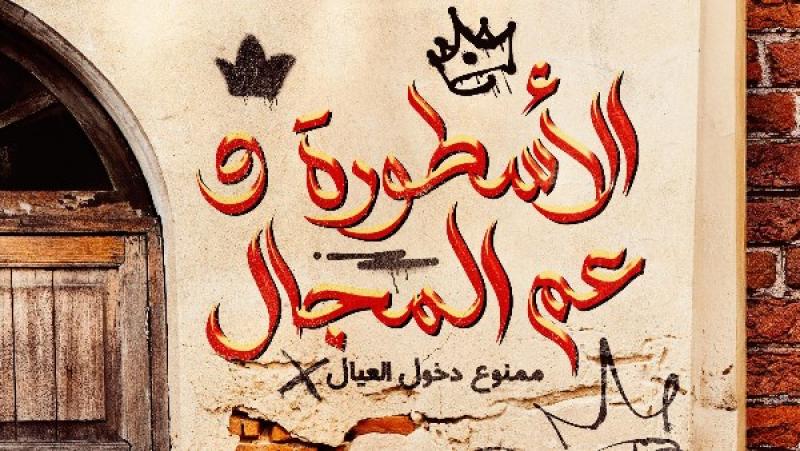 الأسطورة و
عم المجال
ممنوع دخول العيال